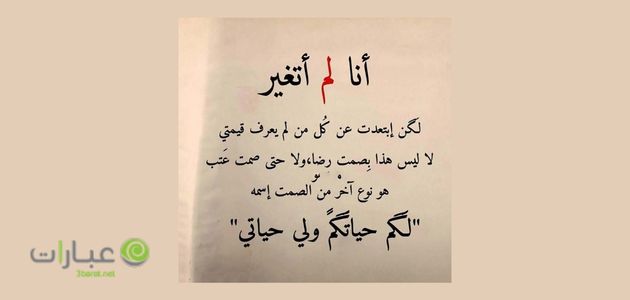 أنا لم أتغير
لكن إبتعدت عن كُل من لم يعرف قيمتي
لا ليس هذا بِصمت رِضا،ولا حتى صمت عَتب
هو نوع آخرْ منّ الصمت إسمه
"لكم حياتكمً ولي حياتي"
عبارات
3barat.net